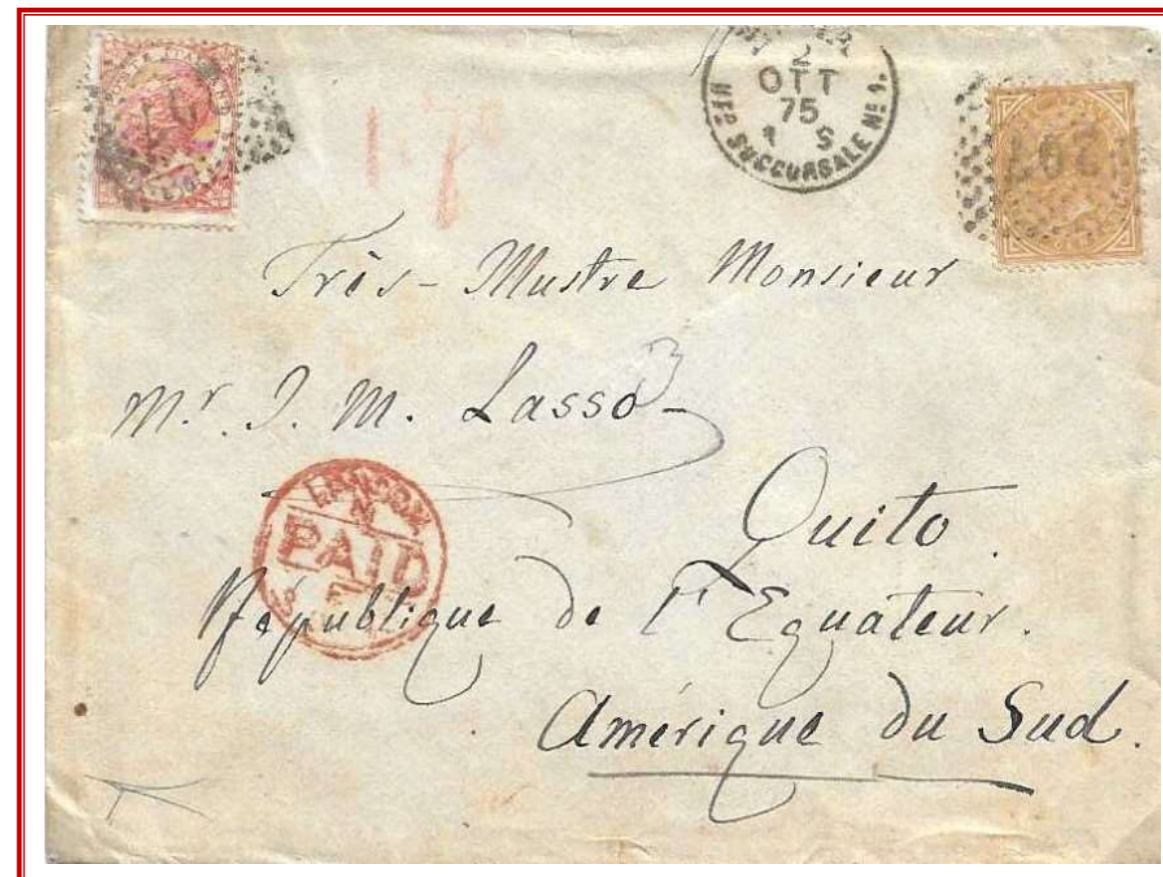 2
OTT
75
UFF? SUCCURSALE Nº 1.
207
Très-Illustre Monsieur
Mr. J. M. Lasso
Quito.
LONDON
PAID
République de l'Equateur.
Amérique du Sud.